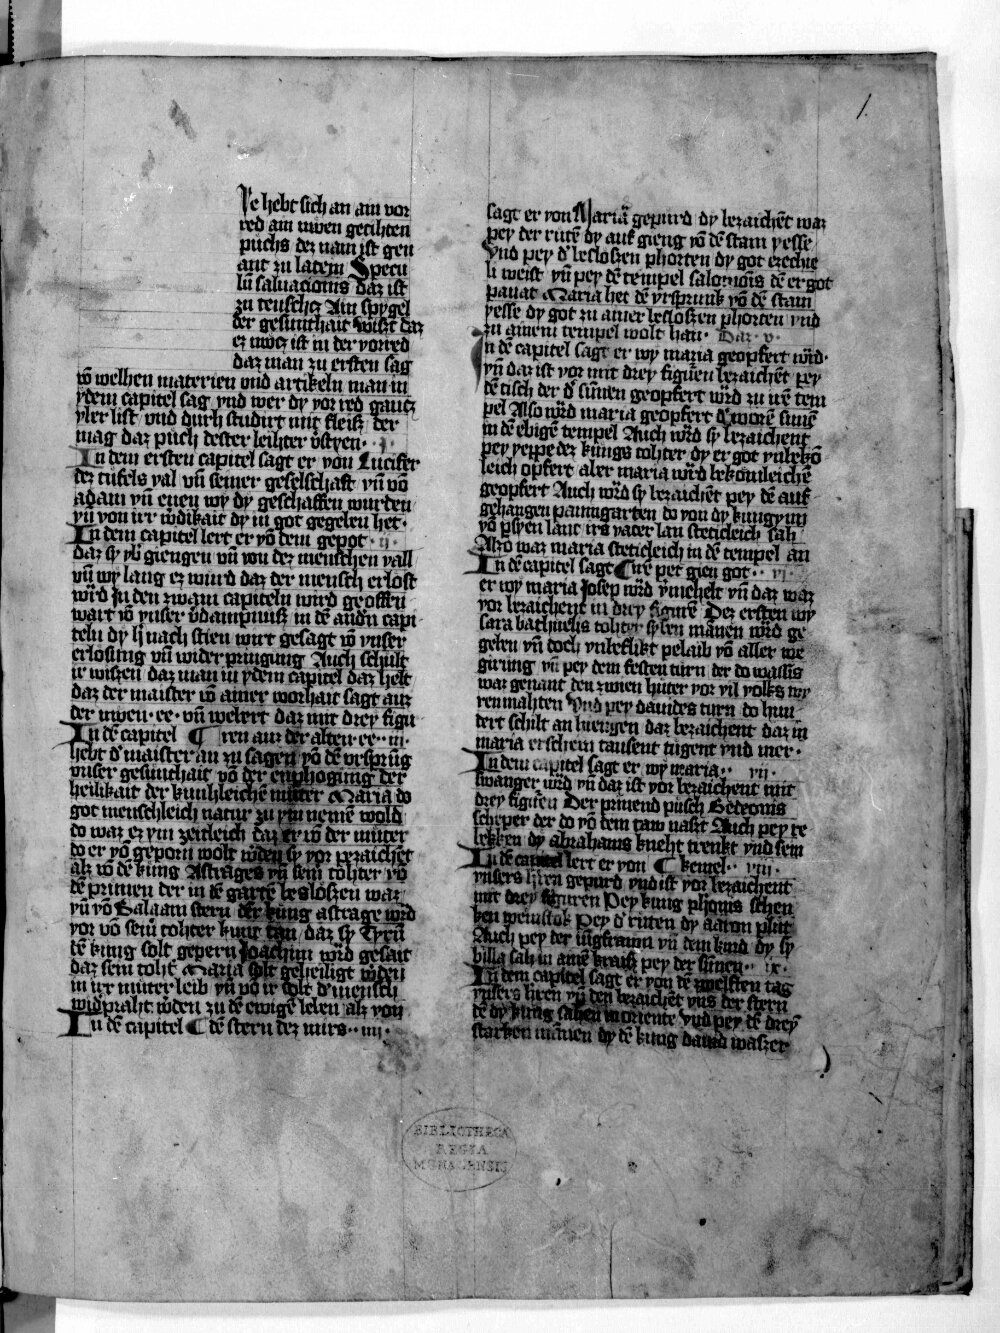 1.
ie hebt sich an ain vor
red ain niwen getihten
půchs dez nam ist gen
ant zu latein Specu
lū saluacionis daz ist
zu teuschcz Ain spygel
der gesunthait Wiszt daz
ez niwcz ist in der vorred
daz man zu ersten sag
vō welhen materien vnd artikeln man in
ydem capitel sag vnd wer dy vorred gancz
vberlist vnd durh studirt mit fleisz der
mag daz půch dester leihter v̄styen · i ·
In dem ersten capitel sagt er von Lucifer
dez tüfels val vn̄ seiner geselschaft vn̄ vō
adam vn̄ euen wy dy geschaffen wurden
vn̄ von irr wirdikait dy in got gegeben het ·
In dem capitel lert er vō dem gepot · ii ·
daz sy vb̄ giengen vn̄ von dez menschen vall
vn̄ wy lang ez wurd daz der mensch erlost
würd Jn den zwain capiteln wird geoffen
wart vō vnser v̄dampnusz in dē andn̄ capi-
teln dy h nach stien wirt gesagt vō vnser
erlosung vn̄ wider pringung Auch schult
ir wiszen daz man in ydem capitel daz helt
daz der maister vō ainer worhait sagt auz
der niwen · ee · vn̄ webert daz mit drey figu
In dē capitel ¶ ren auz der alten · ee · · iii ·
hebt d' maister an zu sagen vō dē vrsprūg
vnser gesunthait vō der enphogung der
heilikait der kunhleichē müter Maria do
got menschleich natur zu ym nemē wold
do waz ez ym zeitleich daz er vō der müter
do er vō geporn wolt w̄den sy vor pezaichēt
alz vō dē kūng Astrages vn̄ sein tohter vō
dē prunen der in dē gartē beslōszen waz
vn̄ vō Balaam stern der kūng astrage ward
vor vō seinr tohter kunt tan daz sy Cyrū
dē kūng solt gepern Joachim würd gesait
daz sein toht̄ Maria solt geheiligt w̄den
in irr müter leib vn̄ vō ir solt d' mensch
widpraht w̄den zu dē ewigē leben alz von
In dē capitel ¶ dē stern dez mirs · · iiii ·
sagt er von Maria gepurd dy bezaichēt waz
pey der rutē dy auf gieng vō dē stam yesse
Vnd pey d' beslosen phorten dy got ezechie
li weist vn̄ pey dē tempel salomōis dē er got
pavat Maria het dē vrsprunk vō dē stam
yesse dy got zu ainer besloszen phorten vnd
zu ainem tempel wolt han · Daz · v ·
In dē capitel sagt er wy maria geopfert wird ·
vn̄ daz ist vor mit drey figūren bezaichēt pey
dē tisch der d' sūnen geopfert wird zu irē tem
pel Also wird maria geopfert d' worē sunē
in dē ebigē tempel Auch wird sy bezaichent
pey yeppe dez kūngs tohter dy er got vnbekō
leich opfert aber maria wird bekōmleichē
geopfert Auch wird sy bezaichēt pey dē auf-
gehangen paumgarten do von dy kūngynn
vō psyen lant irs vater lan steticleich sah
Also waz maria steticleich in dē tempel an
In dē capitel sagt ¶ irē pet gien got · · vi ·
er wy maria Josep würd ẏmēhelt vn̄ daz waz
vor bezaichent in drey figurē Dez ersten wy
sara bathuelis tohter syben manen würd ge
geben vn̄ doch vnbeflikt pelaib vō aller we
girung vn̄ pey dem festen turn der do wassis
waz genant den zwien hüter vor vil volks wy
ren mahten Vnd pey dauides turn do hun
dert schilt an hiengen daz bezaichent daz in
maria erschein tausent tugent vnd mer ·
In dem capitel sagt er wy maria · · vii ·
swanger wird vn̄ daz ist vor bezaichent mit
drey figūren Der prinend pusch Gedeonis
scheper der do vō dem taw naszt Auch pey re
bekken dy abrahams kneht trenkt vnd sein
In dē capitel lert er von ¶ kemel · · viii ·
vnsers h̄ren gepurd vnd ist vor bezaichent
mit drey figuren Pey kūng pharonis schen
ken weinstok Pey d' růten dy aaron plüt
Auch pey der iūgfrawn vn̄ dem kind dy sy
billa sah in ainē kraisz pey der sūnen · · ix ·
In dem capitel sagt er von dē zwelften tag
vnsers h̄ren vn̄ den bezaichēt vns der stern
dē dy kūng sahen in oriente Vnd pey dē drey
starken mānen dy dē kūng dauid waszer
BIBLIOTHECA
REGIA
MONACENSIS